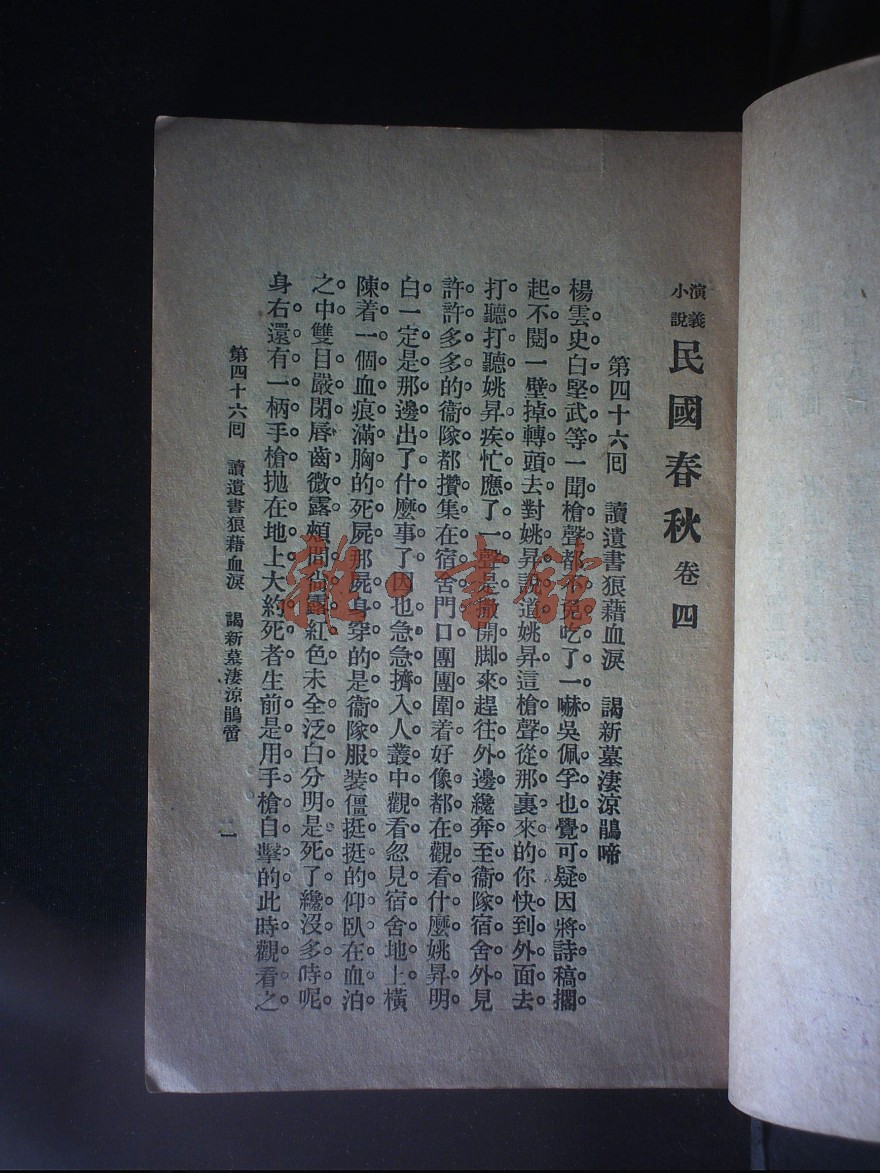 演義小說 民國春秋 卷四
第四十六回 讀遺書狼藉血淚 謁新墓淒涼鵑啼
楊雲史白堅武等一聞槍聲都不免吃了一嚇吳佩孚也覺可疑因將詩稿擱
起不閱一壁掉轉頭去對姚昇說道姚昇這槍聲從那裏來的你快到外面去
打聽打聽姚昇疾忙應了一聲是撒開脚來趕往外邊纔奔至衞隊宿舍外見
許許多多的衞隊都攢集在宿舍門口團團圍着好像都在觀看什麼姚昇明
白一定是那邊出了什麼事了因也急急擠入人叢中觀看忽見宿舍地上橫
陳着一個血痕滿胸的死屍那屍身穿的是衞隊服裝僵挺挺的仰臥在血泊
之中雙目嚴閉唇齒微露頰間尙露紅色未全泛白分明是死了纔沒多時呢
身右還有一柄手槍拋在地上大約死者生前是用手槍自擊的此時觀看之
第四十六回 讀遺書狼藉血淚 謁新墓淒涼鵑啼
一
雜·書館